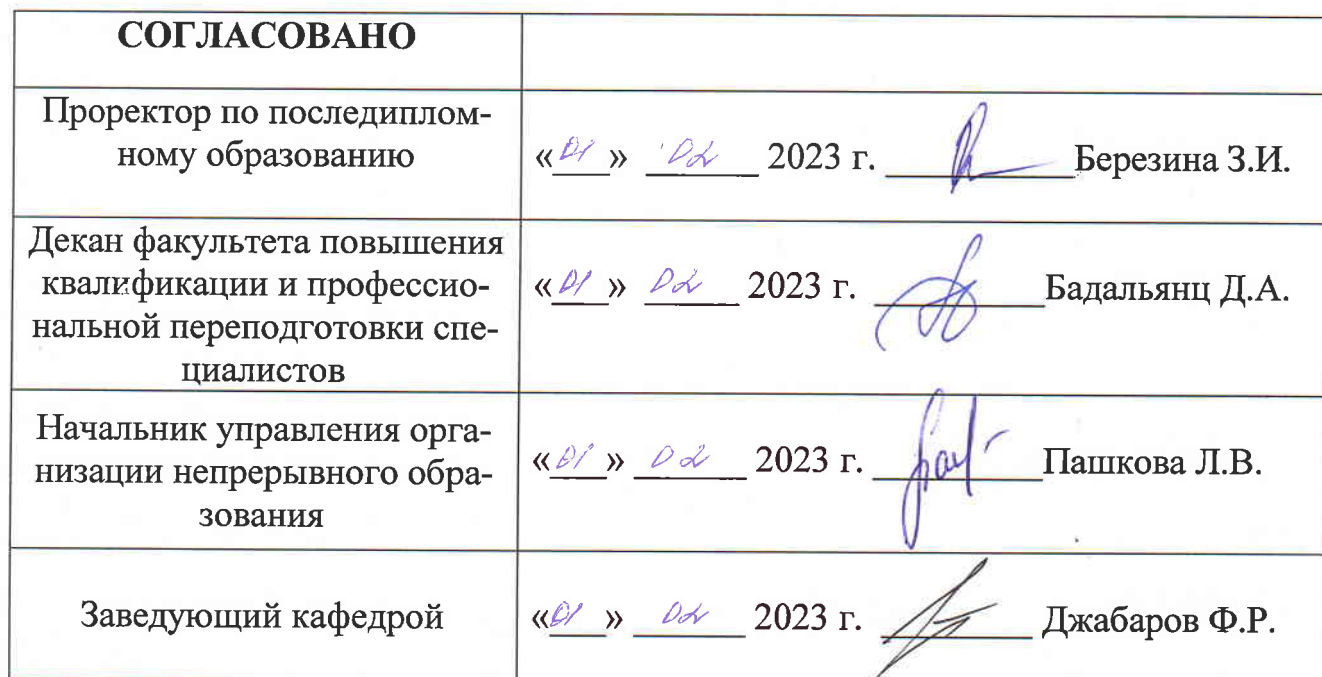 СОГЛАСОВАНО
Проректор по последиплом-
ному образованию
«01» 02 2023 г. Березина З.И.
Декан факультета повышения
квалификации и профессио-
нальной переподготовки спе-
циалистов
«01» 02 2023 г. Бадальянц Д.А.
Начальник управления орга-
низации непрерывного обра-
зования
«01» 02 2023 г. Пашкова Л.В.
Заведующий кафедрой
«01» 02 2023 г. Джабаров Ф.Р.